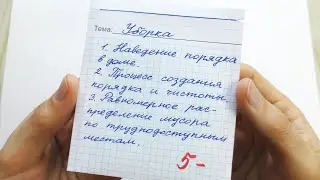 Тема: Уборка
1. Наведение порядка
в доме.
2. Процесс создания
порядка и чистоты.
3. Равномерное рас-
пределение мусора
по труднодоступным
местам.
5-